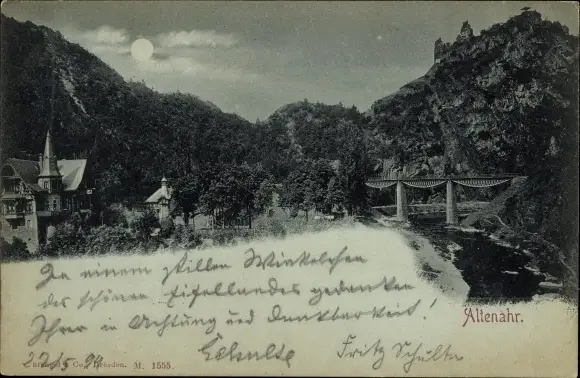 In einem stillen Winkelchen
des schönen Eifellandes gedenken
Ihrer in Achtung und Dankbarkeit!
Altenahr.
ESchulte Fritz Schulte
27/5 98
& Co., Dresden. M. 1555.